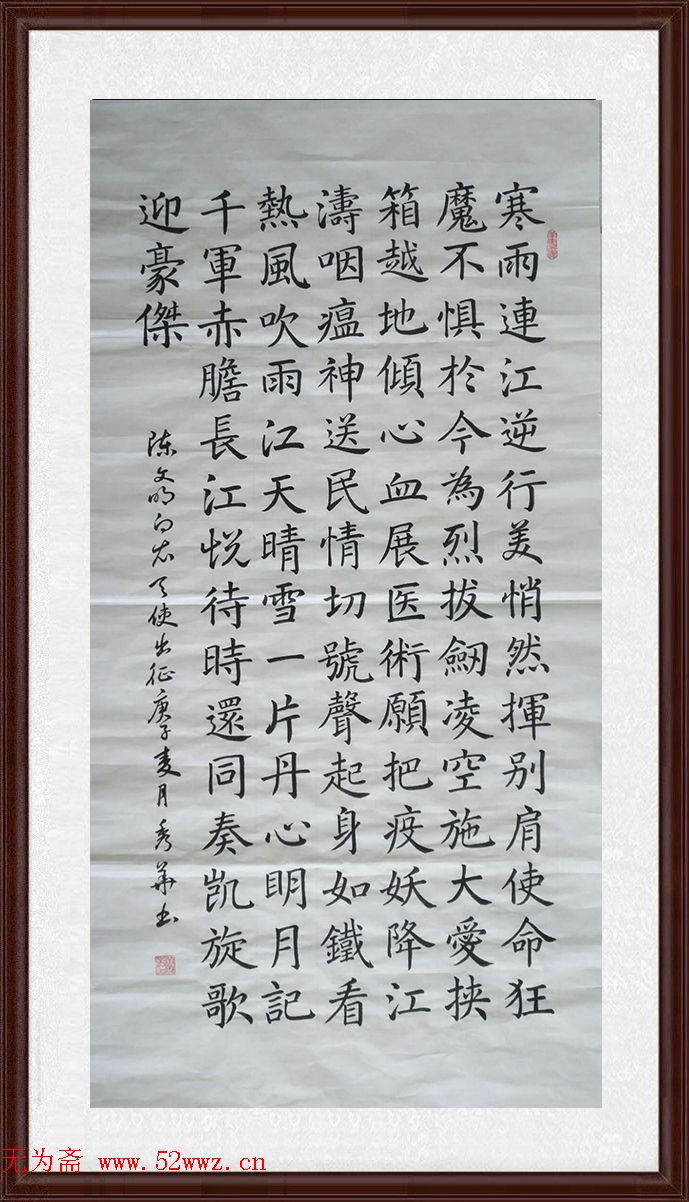 寒雨連江逆行美悄然揮别肩使命狂
魔不惧於今為烈拔劒凌空施大愛挟
箱越地傾心血展医術願把疫妖降江
濤咽瘟神送民情切號聲起身如鐵看
熱風吹雨江天晴雪一片丹心明月記
千軍赤膽長江悦待時還同奏凱旋歌
迎豪傑
陈文明白衣天使出征庚子月秀華书
无为斋 www.52wwz.cn